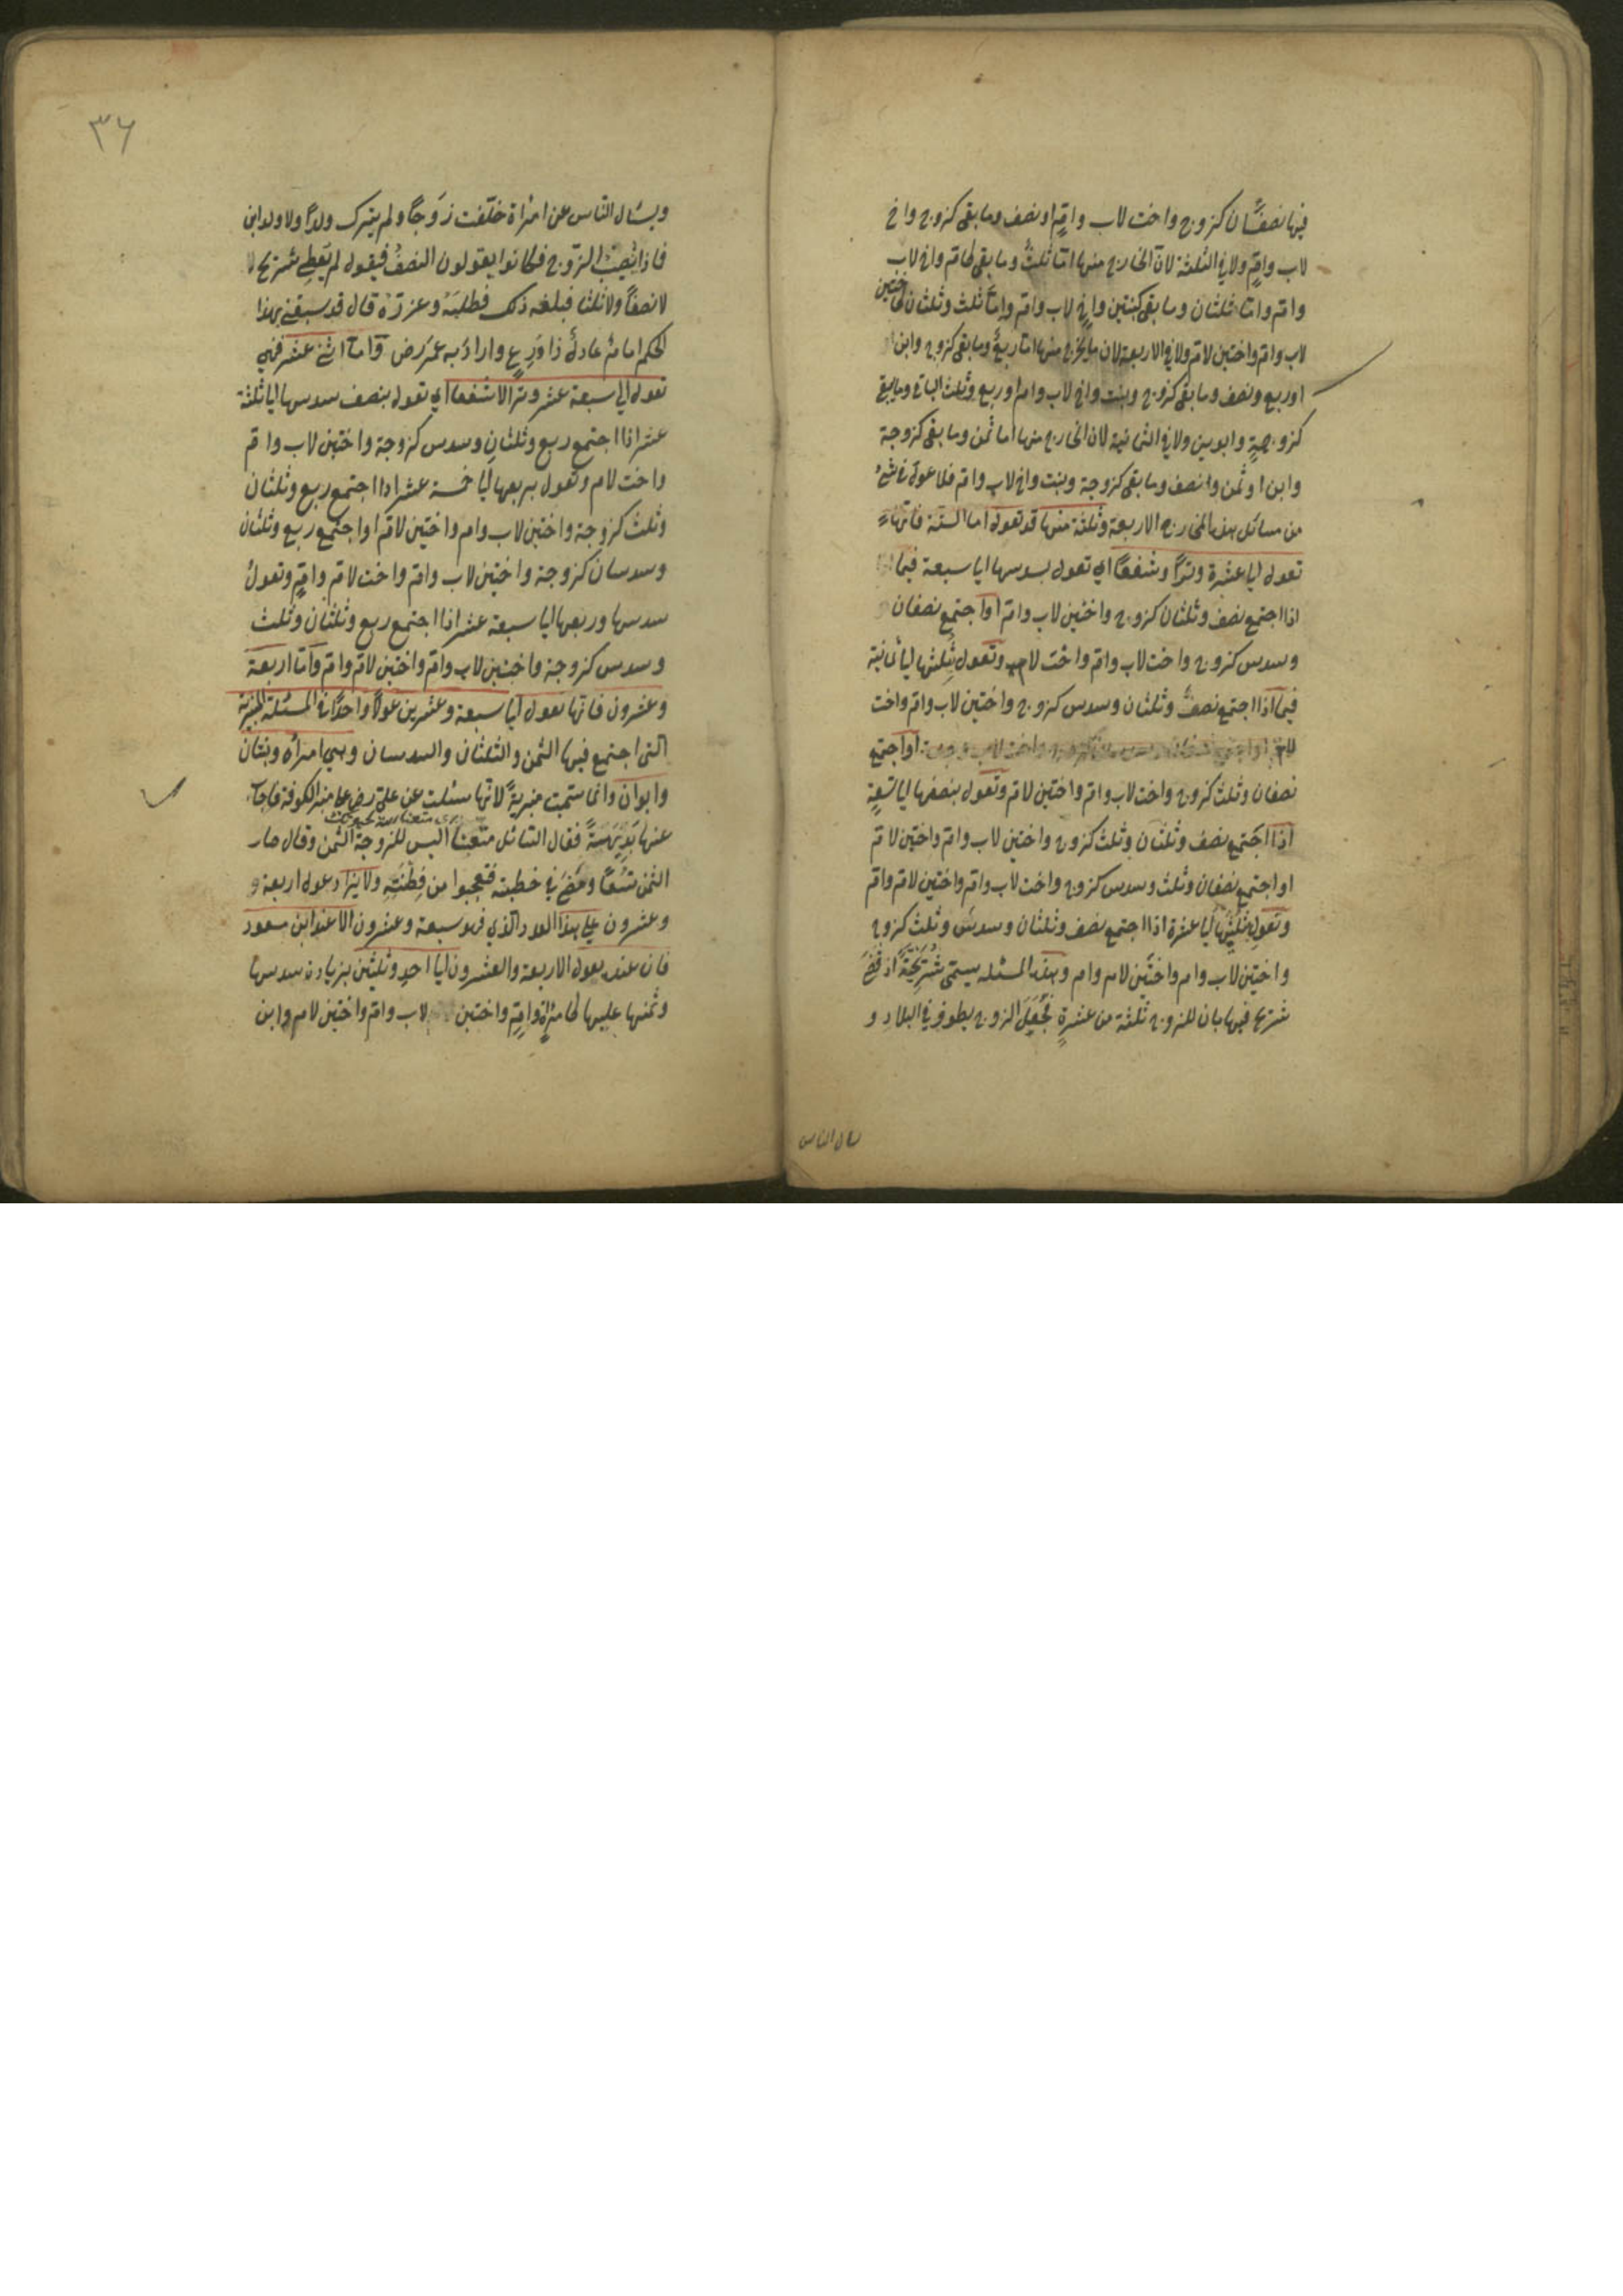 فيها نصفان كزوج واخت لاب وام او نصف وما بقى كزوج واخ
لاب وام ولا في الثلثة لان الخارج منها اما ثلث وما بقى كام واخ لاب
وام واما ثلثان وما بقى كبنتين واخ لاب وام واما ثلث وثلثان كاختين
لاب وام واختين لام ولا في الاربعة لان ما يخرج منها اما ربع وما بقى كزوج وابن
او ربع ونصف وما بقى كزوج وبنت واخ لاب وام او ربع وثلث الباقي وما بقى
كزوجة وابوين ولا في الثمانية لان الخارج منها اما ثمن وما بقى كزوجة
وابن او ثمن ونصف وما بقى كزوجة وبنت واخ لاب وام فلا عول في شئ
من مسائل هذه المخارج الاربعة وثلثة منها قد تعول اما الستة فانها
تعول الى عشرة وترا وشفعا اي تعول بسدسها الى سبعة فيما
اذا اجتمع نصف وثلثان كزوج واختين لاب وام او اجتمع نصفان
وسدس كزوج واخت لاب وام واخت لام وتعول بثلثها الى ثمانية
فيما اذا اجتمع نصف وثلثان وسدس كزوج واختين لاب وام واخت
لام او اجتمع
نصفان وثلث كزوج واخت لاب وام واختين لام وتعول بنصفها الى تسعة
اذا اجتمع نصف وثلثان وثلث كزوج واختين لاب وام واختين لام
او اجتمع نصفان وثلث وسدس كزوج واخت لاب وام واختين لام وام
وتعول بثلثيها الى عشرة اذا اجتمع نصف وثلثان وسدس وثلث كزوج
واختين لاب وام واختين لام وام وهذه المسئلة يسمى شريحية اذ قضى
شريح فيها بان للزوج ثلثة من عشرة فجعل الزوج يطوف في البلاد و
يسال الناس
٣٦
ويسئال الناس عن امراة خلفت زوجا ولم يترك ولدا ولا ولد ابن
فماذا نصيب الزوج فكانوا يقولون النصف فيقول لم يعط شريح
لا نصفا ولا ثلثا فبلغه ذلك فطلبه وعزره قال قد سبقني بهذا
الحكم امام عادل ذا ورع واراد به عمر رض واما اثنى عشر فهي
تعول الى سبعة عشر وترا لا شفعا اي تعول بنصف سدسها الى ثلثة
عشر اذا اجتمع ربع وثلثان وسدس كزوجة واختين لاب وام
واخت لام وتعول بربعها الى خمسة عشر اذا اجتمع ربع وثلثان
وثلث كزوجة واختين لاب وام واختين لام او اجتمع ربع وثلثان
وسدسان كزوجة واختين لاب وام واخت لام وام وتعول
سدسها وربعها الى سبعة عشر اذا اجتمع ربع وثلثان وثلث
وسدس كزوجة واختين لاب وام واختين لام وام واما اربعة
وعشرون فانها تعول الى سبعة وعشرين عولا واحدا في المسئلة المنبرية
التى اجتمع فيها الثمن والثلثان والسدسان وهي امراة وبنتان
وابوان وانما سميت منبرية لانها سئلت عن على رض على منبر الكوفة فاجاب
عنها بديهة فقال السائل متعنتا اليس للزوجة الثمن وقال صار
الثمن تسعا ومضى في خطبته فتعجبوا من فطنته ولا يزاد عول اربعة و
وعشرون على هذا العدد الذي فهو سبعة وعشرون الا عند ابن مسعود
فان عنده يعول الاربعة والعشرون الى احد وثلثين بزيادة سدسها
وثمنها عليها كامراة وام واختين لاب وام واختين لام وابن